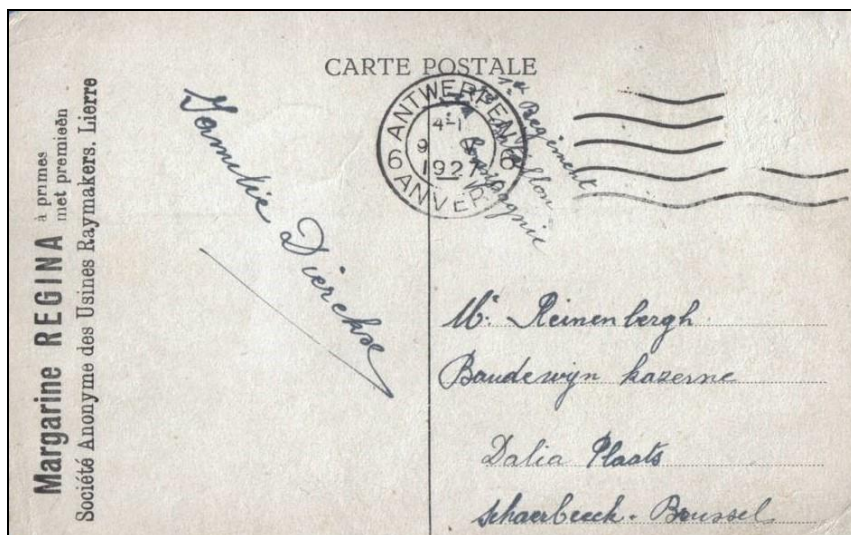 CARTE POSTALE
Margarine REGINA à primes
met premieën
Société Anonyme des Usines Raymakers. Lierre
Familie Dierckse
ANTWERPEN
6 6
1927
ANVERS
1er Regiment
Compagnie
Mr. Reinenbergh
Baudewijn kazerne
Dalia Plaats
Schaerbeeck - Brussel